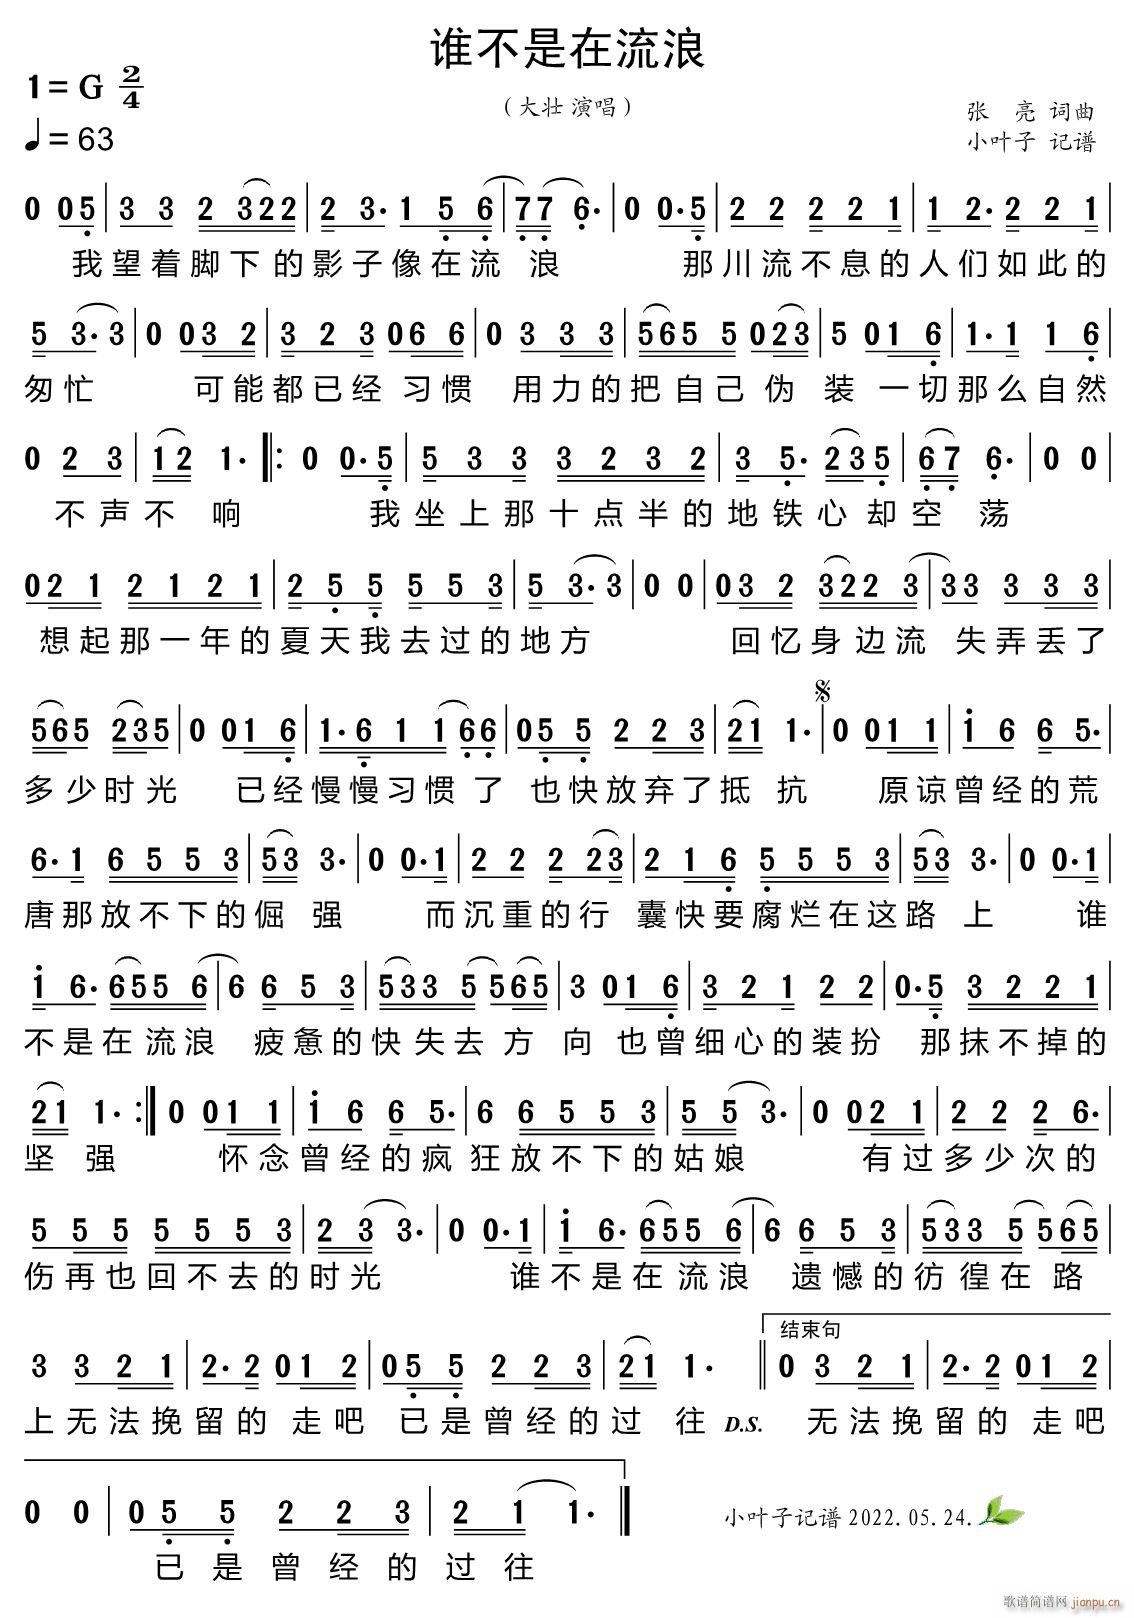 谁不是在流浪
1=G 2/4
（大壮 演唱）
张 亮 词曲
♩=63
小叶子 记谱
0 05 | 3 3 2 322 | 2 3· 1 5 6 | 77 6· | 0 0·5 | 2 2 2 2 1 | 1 2· 2 2 1 |
我望着脚下的影子像在流 浪 那川流不息的人们如此的
5 3· 3 | 0 03 2 | 3 2 3 06 6 | 0 3 3 3 | 565 5 023 | 5 01 6 | 1·1 1 6 |
匆忙 可能都已经 习惯 用力的把自己伪 装 一切那么自然
0 2 3 | 12 1· ‖: 0 0·5 | 5 3 3 3 2 3 2 | 3 5· 235 | 67 6· | 0 0 |
不声不 响 我坐上那十点半的地铁心却空 荡
02 1 2 1 2 1 | 2 5 5 5 5 3 | 5 3· 3 | 0 0 | 03 2 322 3 | 33 3 3 3 |
想起那一年的夏天我去过的地方 回忆身边流 失弄丢了
565 235 | 0 01 6 | 1·6 1 1 66 | 05 5 2 2 3 | 21 1· | 0 01 1 | 1 6 6 5· |
多少时光 已经慢慢习惯了 也快放弃了抵 抗 原谅曾经的荒
6·1 6 5 5 3 | 53 3· | 0 0·1 | 2 2 2 23 | 2 1 6 5 5 5 3 | 53 3· | 0 0·1 |
唐那放不下的倔 强 而沉重的行 囊快要腐烂在这路 上 谁
1 6· 655 6 | 6 6 5 3 | 533 5 565 | 3 01 6 | 3 2 1 2 2 | 0·5 3 2 2 1 |
不是在流浪 疲惫的快失去方 向 也曾细心的装扮 那抹不掉的
21 1· :‖ 0 01 1 | 1 6 6 5· | 6 6 5 5 3 | 5 5 3· | 0 02 1 | 2 2 2 6· |
坚 强 怀念曾经的疯狂放不下的姑娘 有过多少次的
5 5 5 5 5 5 3 | 2 3 3· | 0 0·1 | 1 6· 655 6 | 6 6 5 3 | 533 5 565 |
伤再也回不去的时光 谁不是在流浪 遗憾的彷徨在路
结束句
3 3 2 1 | 2·2 01 2 | 05 5 2 2 3 | 21 1· ‖ 0 3 2 1 | 2·2 01 2 |
上无法挽留的 走吧 已是曾经的过 往 D.S. 无法挽留的 走吧
0 0 | 05 5 2 2 3 | 2 1 1· ‖
小叶子记谱 2022.05.24.
已是曾经的过往
歌谱简谱网 jianpu.cn